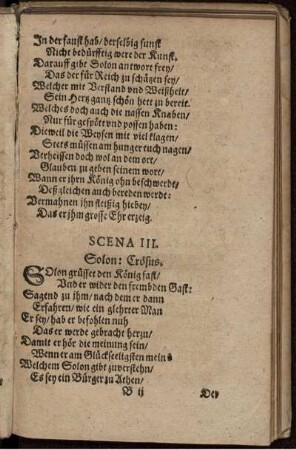 In der faust hab/ derselbig sunst
Nicht bedürfftig were der Kunst.
Darauff gibt Solon antwort frey/
Das der für Reich zu schäzen sey/
Welcher mit Verstand vnd Weißheit/
Sein Hertz gantz schön hett zu bereit.
Welches doch auch die nassen Knaben/
Nur für gespött vnd possen haben:
Dieweil die Weysen mit viel klagen/
Stets müssen am hunger tuch nagen/
Verheissen doch wol an dem ort/
Glauben zu geben seinem wort/
Wann er ihrn König ohn beschwerdt/
Deß gleichen auch bereden werdt:
Vermahnen ihn fleißig hiebey/
Das er jhm grosse Ehr erzeig.
SCENA III.
Solon: Crösus.
SOlon grüsset den König fast/
Vnd er wider den frembden Gast:
Sagend zu ihm/ nach dem er dann
Erfahren/ wie ein glehrter Man
Er sey/ hab er befohlen nuh
Das er werde gebracht herzu/
Damit er hör die meinung sein/
Wenn er am Glückseeligsten mein
Welchem Solon gibt zuverstehn/
Es sey ein Bürger zu Athen/
B ij Der